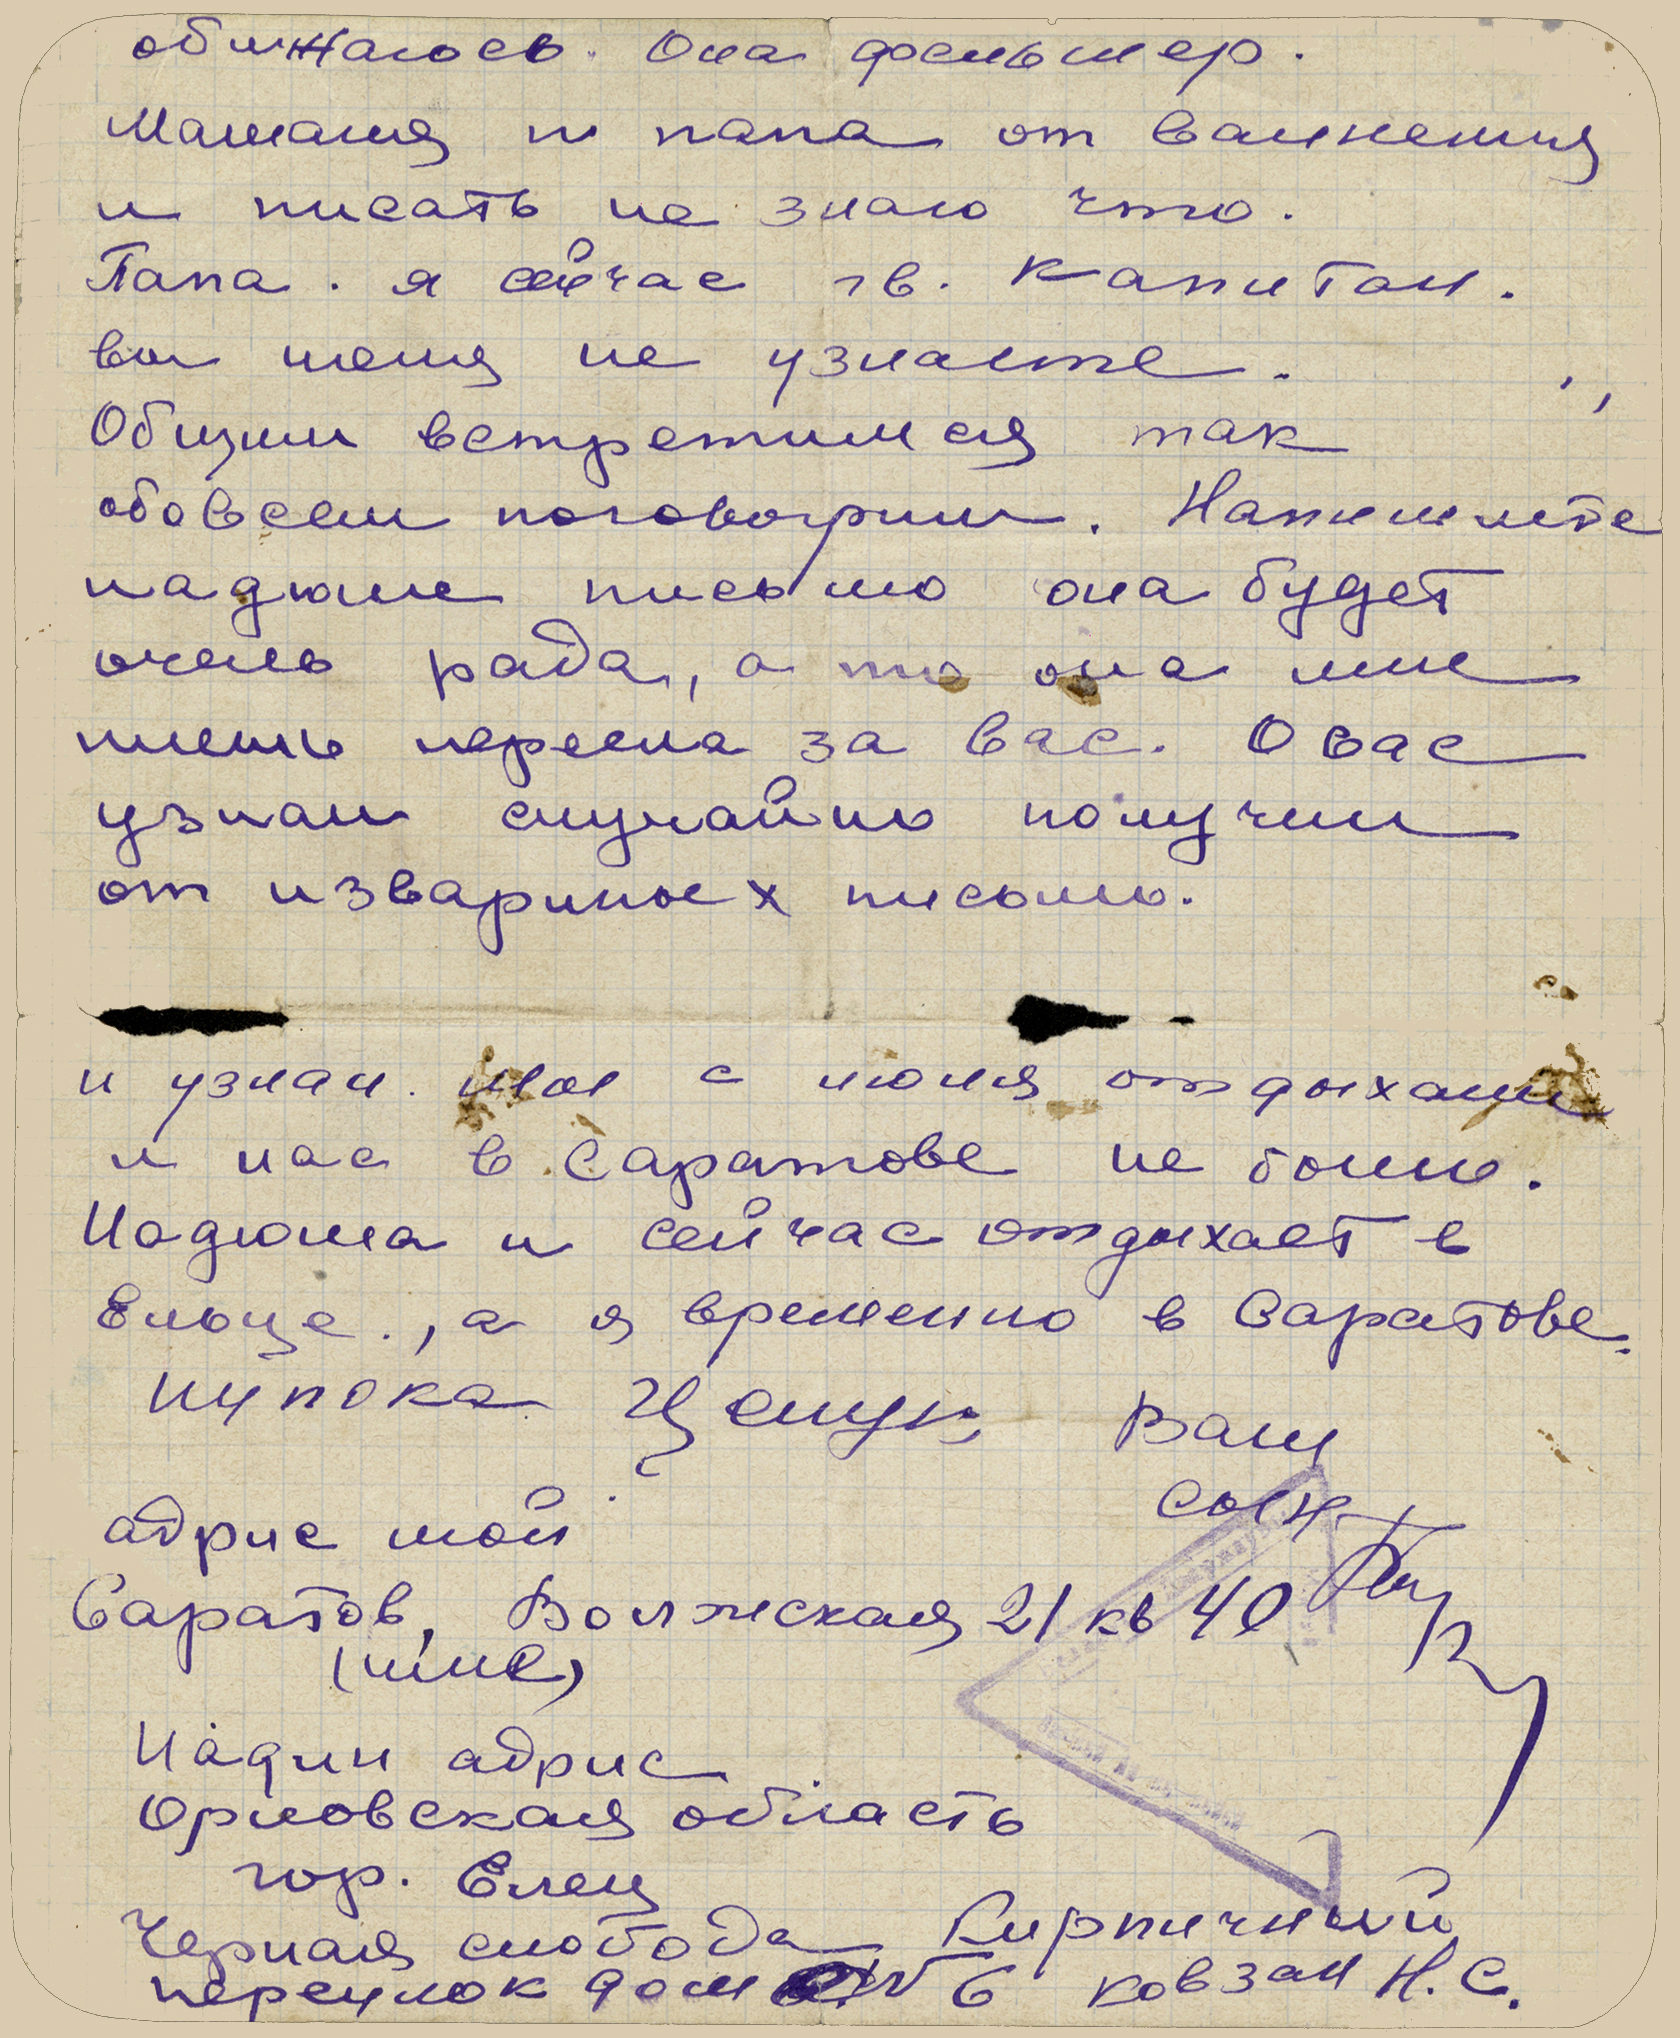 обижаюсь. Она фельшер.
Мамаша и папа от валнения
и писать не знаю что.
Папа. я сейчас гв. Капитан.
вы меня не узнаете.
Общим встретимся так
обовсем поговорим. Напишите
надюше письмо она будет
очень рада, а то она мне
плешь переела за вас. О вас
узнал случайно получил
от извариных письмо.
и узнал. мы с июля отдыхали
и нас в Саратове не было.
Надюша и сейчас отдыхает в
Ельце., а я временно в Саратове.
Ну пока Целую Ваш
сын
адрис мой
Саратов, Волжская 21 кв 40
(мне)
Надин адрис
Орловская область
гор. Елец
Черная слобода Кирпичный
переулок дом № 6 ковзан Н. С.